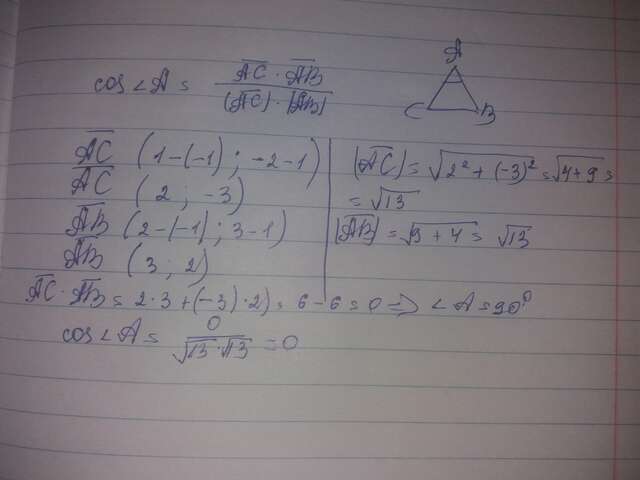 cos ∠A = \frac{\overline{AC} · \overline{AB}}{|\overline{AC}| · |\overline{AB}|}
A
C
B
\overline{AC} (1-(-1); -2-1)
\overline{AC} (2; -3)
\overline{AB} (2-(-1); 3-1)
\overline{AB} (3; 2)
|\overline{AC}| = \sqrt{2^2+(-3)^2} = \sqrt{4+9} =
= \sqrt{13}
|\overline{AB}| = \sqrt{9+4} = \sqrt{13}
\overline{AC} · \overline{AB} = 2·3+(-3)·2) = 6-6=0 => ∠A=90^0
cos ∠A = \frac{0}{\sqrt{13}·\sqrt{13}} = 0